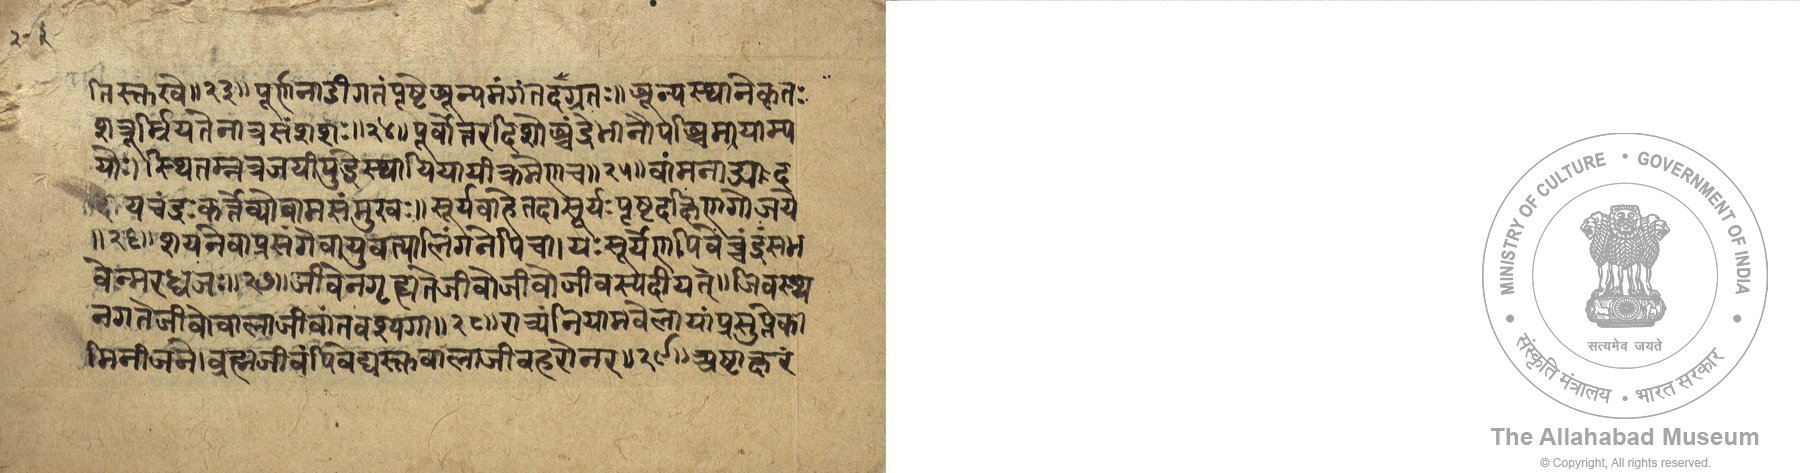 २-३
तिस्तरवे॥२३॥पूर्णनाडीगतंपृष्टेशून्यमंगंतदग्रतः॥शून्यस्थानेकृतः
शत्रूर्म्रियतेनात्रसंशशः॥२४॥पूर्वोत्तरदिशौश्चंद्रेभानौपश्चिमायाम्य
योः॥स्थितस्तत्रजयीयुद्धेस्थायियायीक्रमेणच॥२५॥वामनाड्या
यचंद्रःकर्त्तव्योवामसंमुखः॥सूर्यवाहेतदासूर्यःपृष्टदक्षिणगोजये
॥२६॥शयनेवाप्रसंगेवायुवत्यालिंगनेपिचा।यःसूर्येणपिवेच्चंद्रंसभ
वेन्मरध्वजः॥२७॥जीवेनगृह्यतेजीवोजीवोजीवस्यदीयते॥जिवस्थ
नगतेजीवोवालाजीवांतवश्यगा॥२८॥रात्र्यंनियामवेलायांप्रसुप्तेका
मिनीजने।व्रह्मजीवंपिवेद्यस्तवालाजीवहरोनर॥२९॥अष्टाक्षरं
MINISTRY OF CULTURE • GOVERNMENT OF INDIA
सत्यमेव जयते
संस्कृति मंत्रालय • भारत सरकार
The Allahabad Museum
© Copyright, All rights reserved.